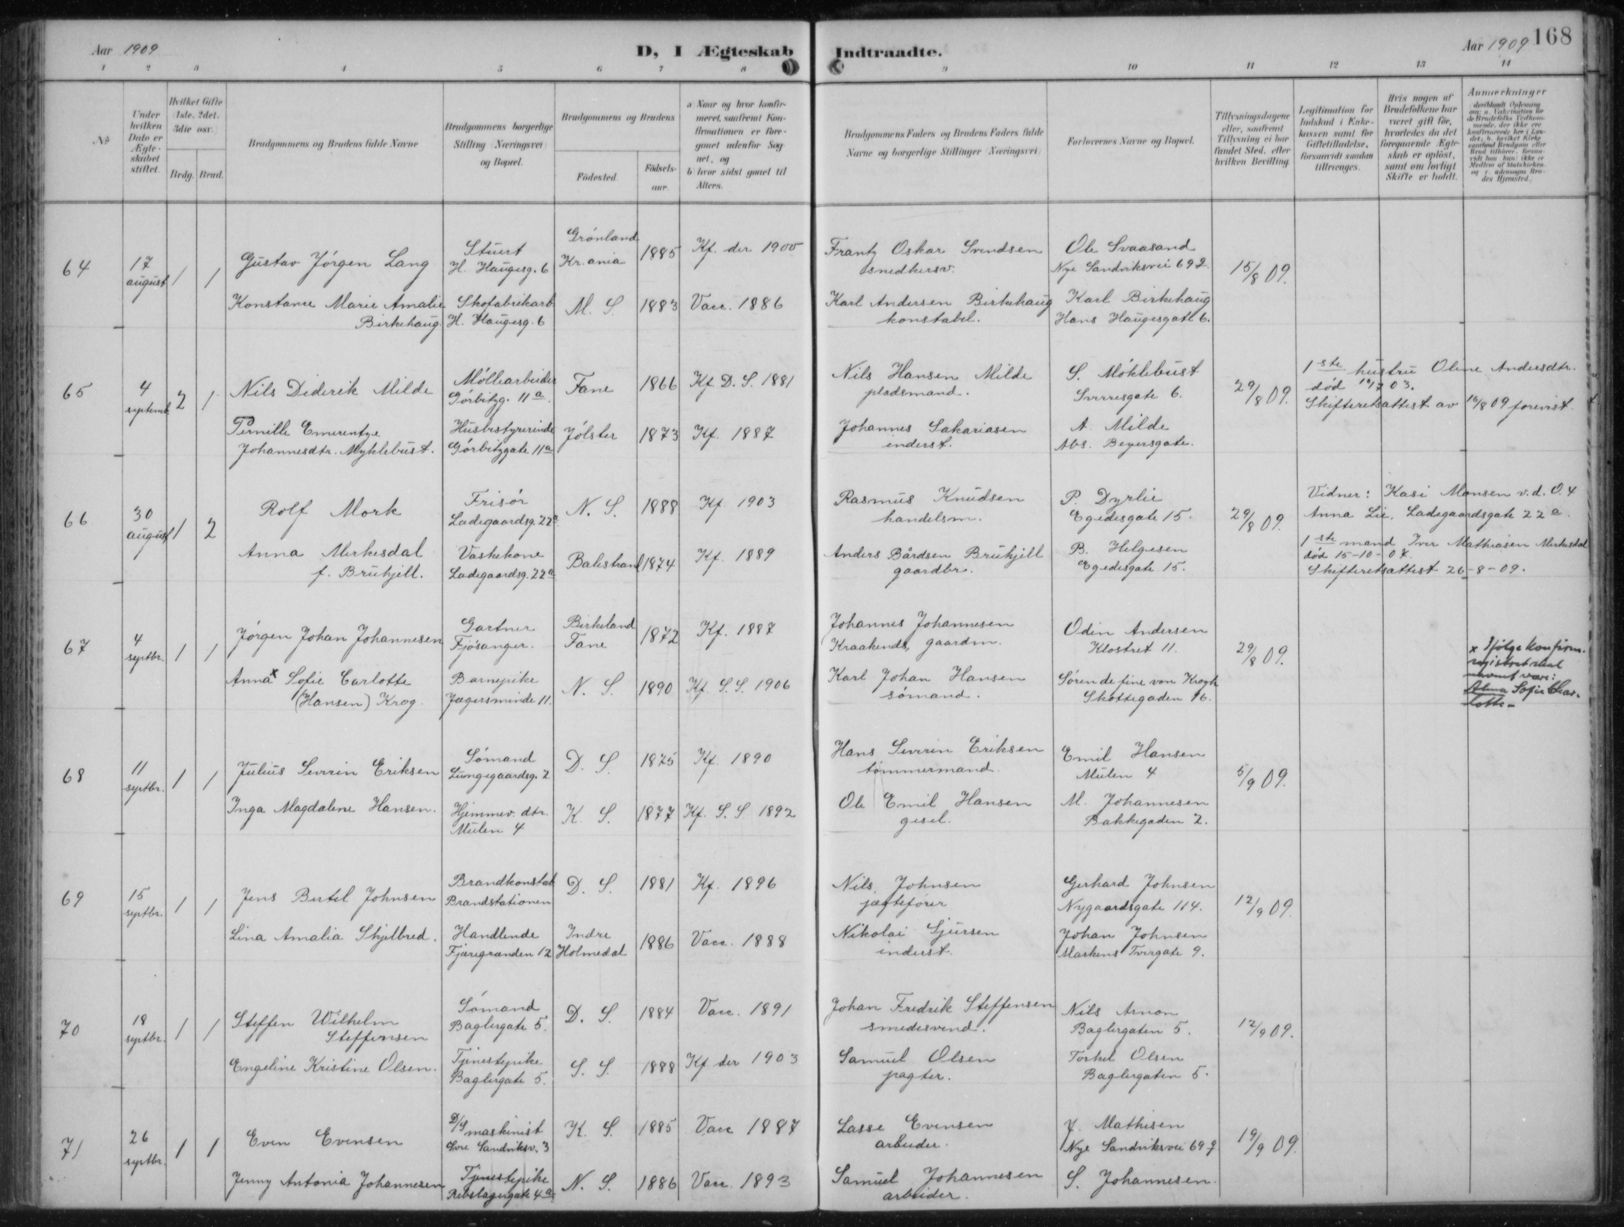 Aar 1909
D, I Ægteskab Indtraadte.
Aar 1909 168
1 2 3 4 5 6 7 8 9 10 11 12 13 14
No
Under hvilken Dato er Ægteskabet stiftet.
Hvilket Gifte (1ste, 2det, 3die osv.)
Brdg. Brud.
Brudgommens og Brudens fulde Navne
Brudgommens borgerlige Stilling (Næringsvei) og Bopæl.
Brudgommens og Brudens
Fødested.
Fødselsaar.
a Naar og hvor konfirmeret, saafremt Konfirmationen er foregaaet udenfor Sognet, og
b hvor sidst gaaet til Alters.
Brudgommens Faders og Brudens Faders fulde Navne og borgerlige Stillinger (Næringsvei)
Forlovernes Navne og Bopæl.
Tillysningsdagene eller, saafremt Tillysning ei har fundet Sted, efter hvilken Bevilling
Legitimation for Indskud i Enkekassen samt for Giftetilladelse, forsaavidt saadan tiltrænges.
Hvis nogen af Brudefolkene har været gift før, hvorledes da det foregaaende Ægteskab er opløst, samt om lovligt Skifte er holdt.
Anmærkninger
64
17 august
1 1
Gustav Jörgen Lang
Stuert
H. Haugesg. 6
Grönland
Kr.ania
1885
Kf. der 1900
Frantz Oskar Svendsen
smedkersv.
Ole Svaasand
Nye Sandviksvei 692
15/8 09.
Konstance Marie Amalie
Birkehaug.
Skofabrikarb.
H. Haugesg. 6
M. S.
1883
Vacc. 1886
Karl Andersen Birkehaug
konstabel.
Karl Birkehaug
Hans Haugesgate 6.
65
4 septemb.
2 1
Nils Diderik Milde
Möllearbeider
Görbitzg. 11a.
Fane
1866
Kf. D. S. 1881
Nils Hansen Milde
pladsmand.
S. Möklebust
Sverresgate 6.
29/8 09.
1ste hustru Oline Andersdtr.
Skifteretsattest av 16/8 09 forevist.
Pernille Emerentze
Johannesdtr. Myklebust.
Husbestyrerinde
Görbitzgate 11a
Jölster
1873
Kf. 1887
Johannes Sakariasen
inderst.
A. Milde
Abs. Beyersgate.
66
30 august
1 2
Rolf Mork
Frisör
Ladegaardsg. 22a
N. S.
1888
Kf. 1903
Rasmus Knudsen
handelsm.
P. Dyrlie
Egedesgate 15.
29/8 09.
Vidner: Kasi Monsen v. d. O. 4
Anna Lie, Ladegaardsgate 22a.
Anna Merkesdal
f. Brükjell.
Vaskekone
Ladegaardsg. 22a
Balestrand
1874
Kf. 1889
Anders Bårdsen Brükjell
gaardbr.
B. Helgesen
Egedesgate 15.
1ste mand Iver Mathiasen Merkesdal
död 15-10-07.
Skifteretsattest 26-8-09.
67
4 septbr.
1 1
Jörgen Johan Johannesen
Gartner
Fjösanger.
Birkeland
Fane
1872
Kf. 1887
Johannes Johannesen
Kraakenes, gaardm.
Odin Andersen
Klostret 11.
29/8 09.
Anna x Sofie Carlotte
(Hansen) Krog.
Barnepike
Jægersminde 11.
N. S.
1890
Kf. S. S. 1906
Karl Johan Hansen
sömand.
Sören de fine von Krogh
Skottegaden 16.
x Ifölge konfirm.
Anna Sofie Charlotte
68
11 septbr.
1 1
Julius Severin Eriksen
Sömand
Lungegaardsg. 2
D. S.
1875
Kf. 1890
Hans Severin Eriksen
tömmermand.
Emil Hansen
Mulen 4
5/9 09.
Inga Magdalene Hansen.
Hjemmev. dtr.
Mulen 4
K. S.
1877
Kf. S. S 1892
Ole Emil Hansen
gesel.
M. Johannesen
Bakkegaden 2.
69
15 septbr.
1 1
Jens Bertel Johnsen
Brandkonstab.
Brandstationen
D. S.
1881
Kf. 1896
Nils Johnsen
jægtefører
Gerhard Johnsen
Nygaardsgate 114.
12/9 09.
Lina Amalia Skjelbred.
Handlende
Fjæregranden 12
Indre
Holmedal
1886
Vacc. 1888
Nikolai Sjursen
inderst.
Johan Johnsen
Markens Tvergate 9.
70
18 septbr.
1 1
Steffen Wilhelm
Steffensen
Sömand
Baglergate 5.
D. S.
1884
Vacc. 1891
Johan Fredrik Steffensen
smedesvend.
Nils Arnon
Baglergaten 5.
12/9 09.
Engeline Kristine Olsen.
Tjenestepike
Baglergate 5.
S. S.
1888
Kf. der 1903
Samuel Olsen
pagter.
Torkel Olsen
Baglergaten 5.
71
26 septbr.
1 1
Even Evensen
D/S maskinist
Övre Sandviksv. 3
K. S.
1885
Vacc 1887
Lasse Evensen
arbeider.
J. Mathisen
Nye Sandviksvei 69 f
19/9 09.
Jenny Antonia Johannesen
Tjenestepike
Rebslagergate 4a.
N. S.
1886
Vacc. 1893
Samuel Johannesen
arbeider.
S. Johannesen.